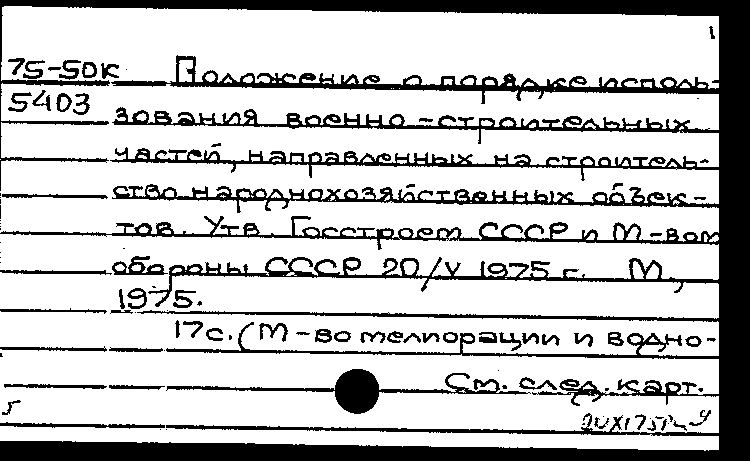 1
75-50К Положение о порядке исполь-
5403 зования военно-строительных
частей, направленных на строитель-
ство народнохозяйственных объек-
тов. Утв. Госстроем СССР и М-вом
обороны СССР 20/V 1975 г. М.,
1975.
17с. (М-во мелиорации и водно-
См. след. карт.
5